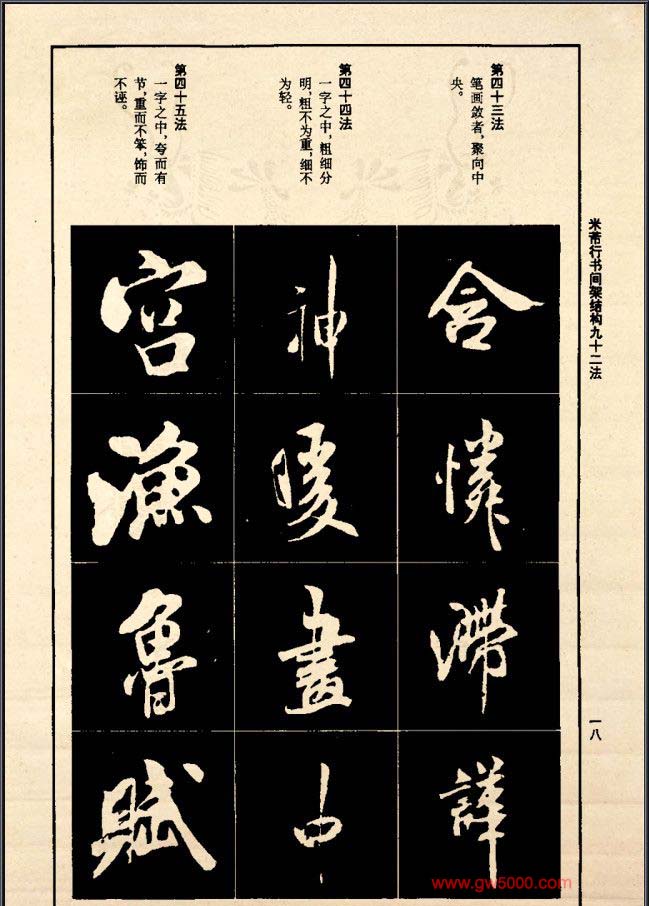 米芾行书间架结构九十二法
一八
第四十三法
笔画敛者，聚向中
央。
含
憐
滯
第四十四法
一字之中，粗细分
明，粗不为重，细不
为轻。
神
暖
畫
中
第四十五法
一字之中，夸而有
节，重而不笨，饰而
不诬。
宮
漁
魯
賦
www.gw5000.com